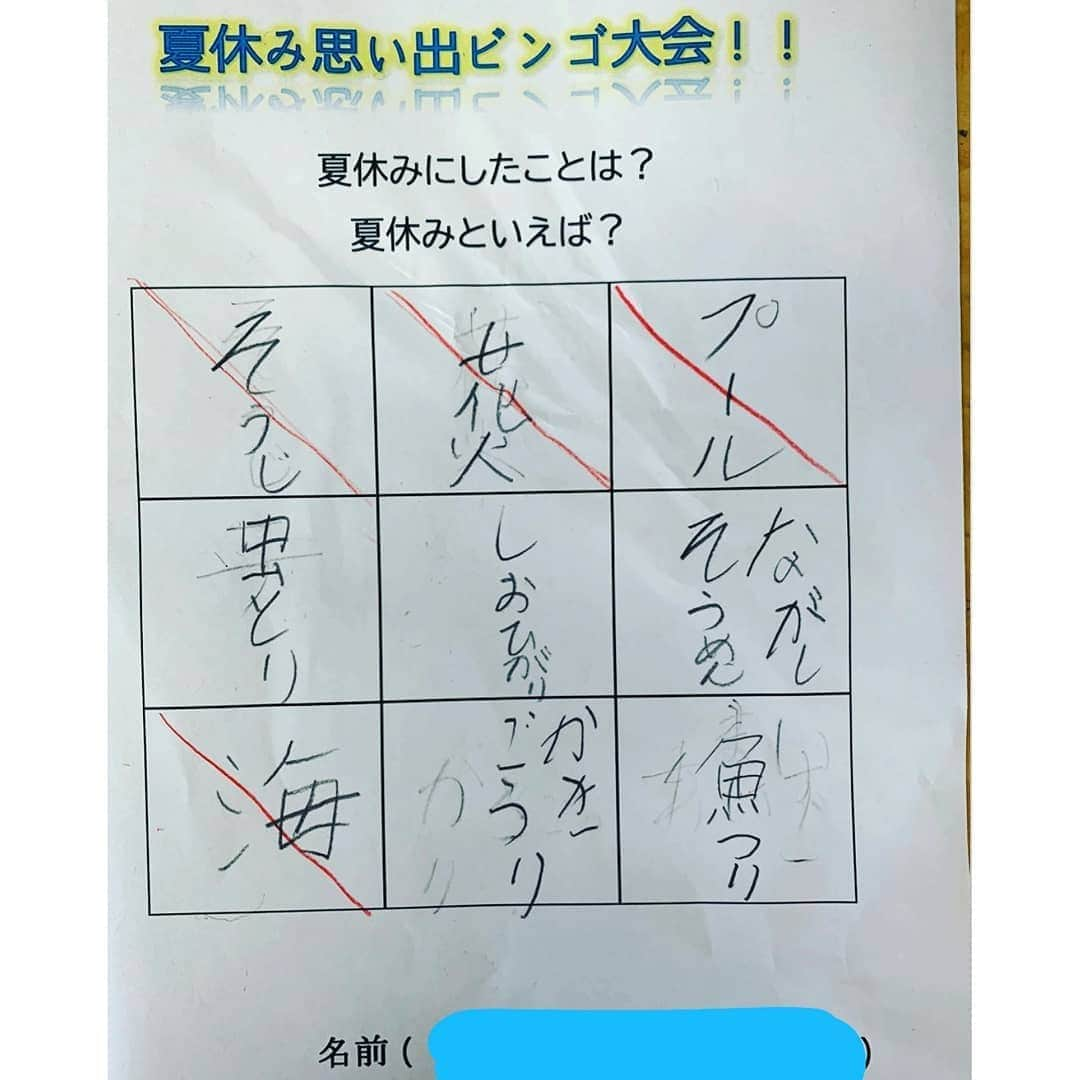 夏休み思い出ビンゴ大会！！
夏休みにしたことは？
夏休みといえば？
そうじ
花火
プール
虫とり
しおひがり
ながし
そうめん
海
かき
ごうり
魚つり
名前(
)